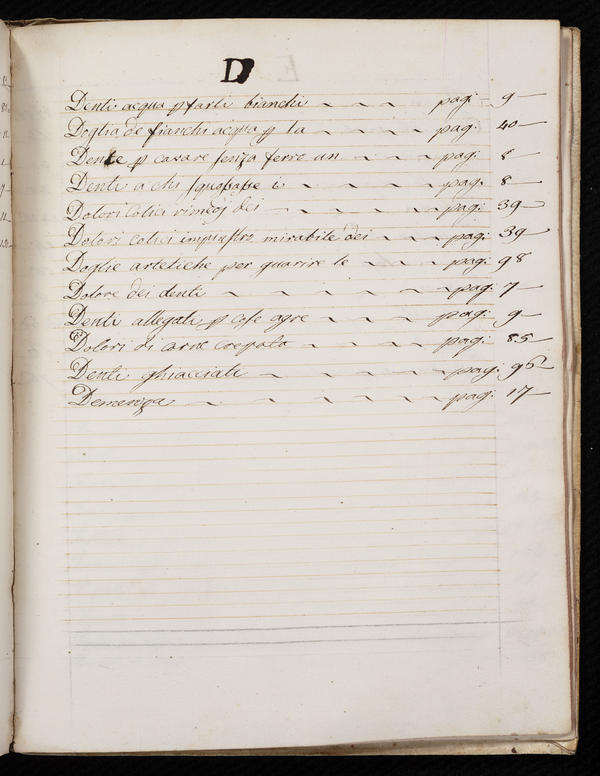 D
Denti acqua p farli bianchi pag: 9
Doglia de fianchi acqua p la pag: 40
Dente p cavare senza ferro un pag:
Denti a chi i pag: 8
Dolori Colici rimedj dei pag: 39
Dolori colici mirabile dei pag: 39
Doglie artetiche per guarire le pag: 98
Dolore dei denti pag: 7
Denti allegati p cose agre pag: 9
Dolori di carne crepata pag: 85
Denti ghiacciati pag: 95
Demenza pag: 17